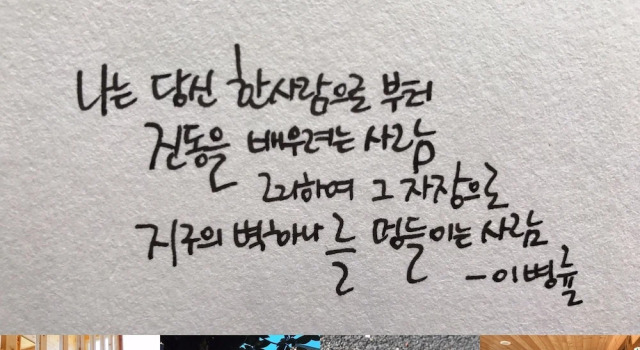 나는 당신 한사람으로 부터
진동을 배우려는 사람
그리하여 그 자장으로
지구의 벽하나를 멍들이는 사람
- 이병률